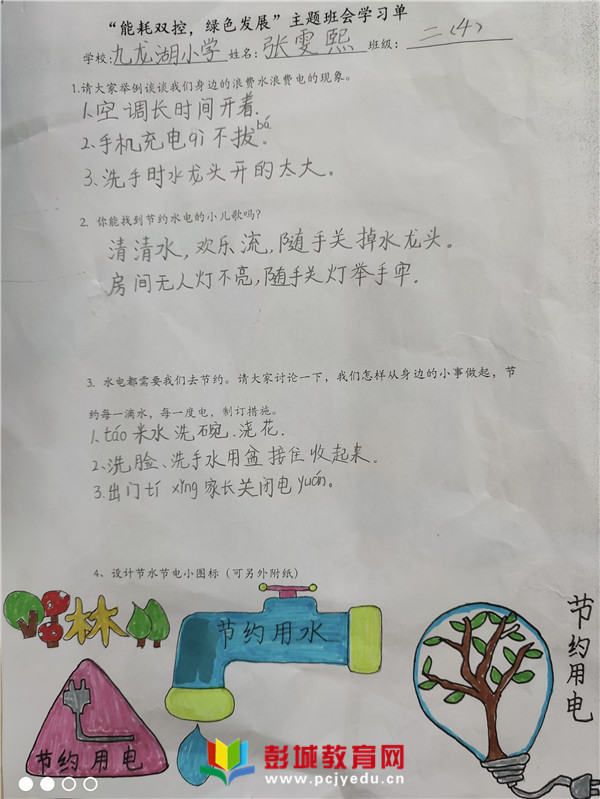 “能耗双控，绿色发展”主题班会学习单
学校:九龙湖小学 姓名:张雯熙 班级:二(4)
1.请大家举例谈谈我们身边的浪费水浪费电的现象。
1.空调长时间开着.
bá
2.手机充电qì不拔。
3.洗手时水龙头开的太大。
2. 你能找到节约水电的小儿歌吗？
清清水,欢乐流,随手关掉水龙头。
房间无人灯不亮,随手关灯举手牢.
3. 水电都需要我们去节约。请大家讨论一下，我们怎样从身边的小事做起，节
约每一滴水，每一度电，制订措施。
1.táo米水洗碗.浇花.
2.洗脸、洗手水用盆接住收起来.
3.出门tí xǐng家长关闭电yuán。
4、设计节水节电小图标（可另外附纸）
林
节约用水
节约用电
节约用电
彭城教育网
www.pcjyedu.cn